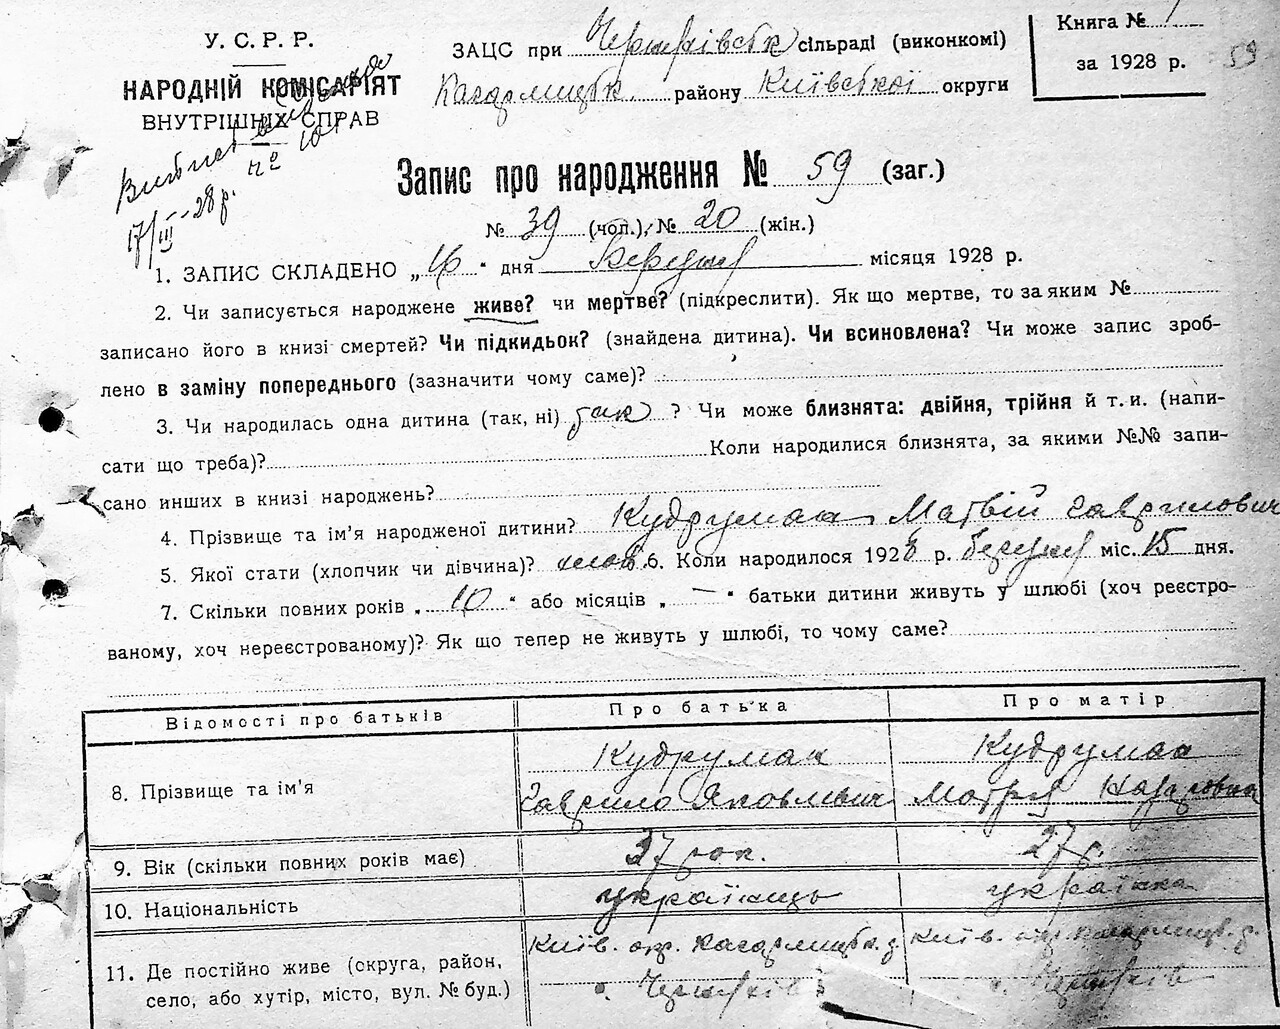 У. С. Р. Р.
НАРОДНІЙ КОМІСАРІЯТ
ВНУТРІШНІХ СПРАВ
17/III-28 р. № 101
ЗАЦС при сільраді (виконкомі)
Кагарлицьк. району Київської округи
Книга № 1
за 1928 р.
59
Запис про народження № 59 (заг.)
№ 39 (чол.), № 20 (жін.)
1. ЗАПИС СКЛАДЕНО „16“ дня Березня місяця 1928 р.
2. Чи записується народжене живе? чи мертве? (підкреслити). Як що мертве, то за яким №
записано його в книзі смертей? Чи підкидьок? (знайдена дитина). Чи всиновлена? Чи може запис зроб-
лено в заміну попереднього (зазначити чому саме)?
3. Чи народилась одна дитина (так, ні) так ? Чи може близнята: двійня, трійня й т. и. (напи-
сати що треба)? Коли народилися близнята, за якими №№ запи-
сано инших в книзі народжень?
4. Прізвище та ім'я народженої дитини? Кудрумак Матвій Гаврилович
5. Якої стати (хлопчик чи дівчина)? хлоп. 6. Коли народилося 1928 р. березня міс. 15 дня.
7. Скільки повних років „10“ або місяців „—“ батьки дитини живуть у шлюбі (хоч реєстро-
ваному, хоч нереєстрованому)? Як що тепер не живуть у шлюбі, то чому саме?
Відомості про батьків Про батька Про матір
8. Прізвище та ім'я Кудрумак Кудрумак
Гаврило Яковлевич Мотря Назаровна
9. Вік (скільки повних років має) 37 рок. 27 р.
10. Національність українець українка
11. Де постійно живе (округа, район, Київ. окр. Кагарлицьк. р. Київ. окр. Кагарлицьк. р.
село, або хутір, місто, вул. № буд.) с. с.